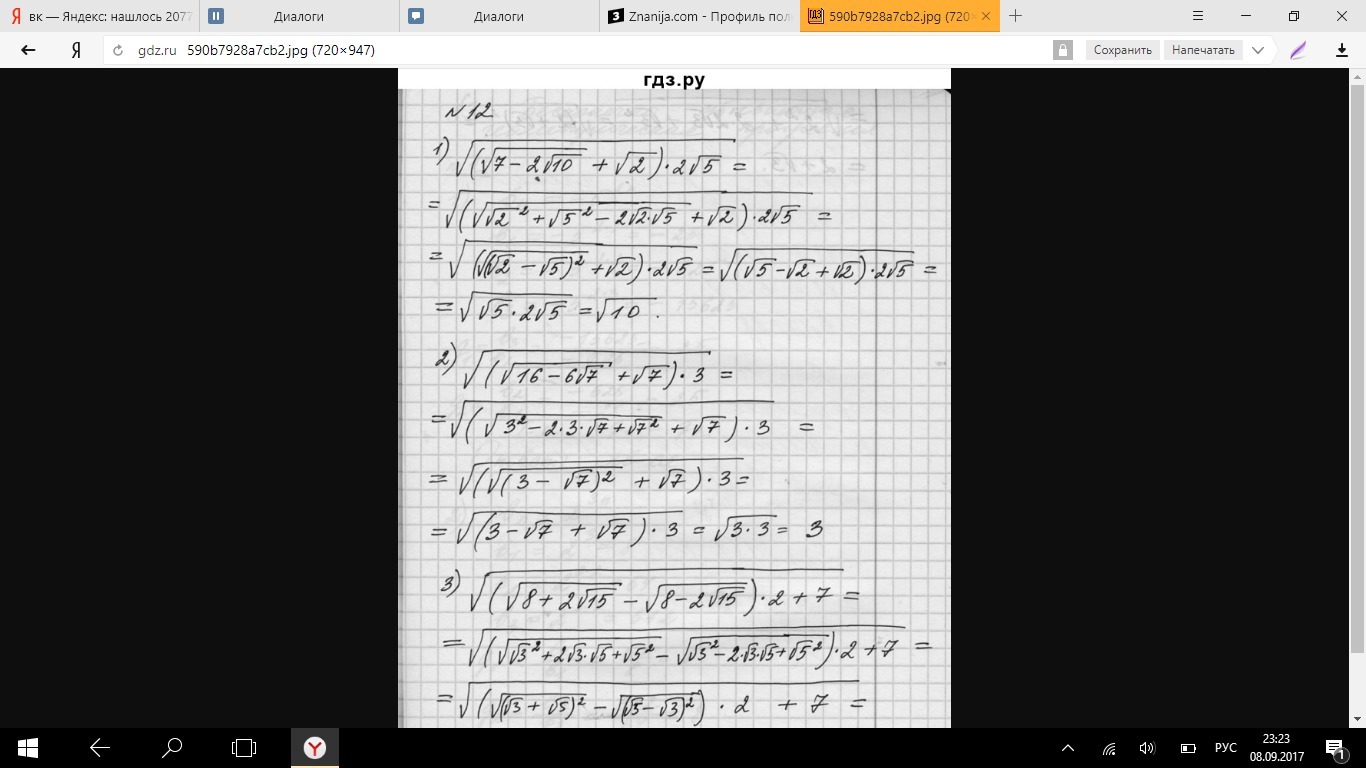 вк — Яндекс: нашлось 2077
Диалоги
Диалоги
Znanija.com - Профиль пол
590b7928a7cb2.jpg (720×
gdz.ru 590b7928a7cb2.jpg (720×947)
Сохранить
Напечатать
гдз.ру
№12
1) √((√(7-2√10) + √2)·2√5) =
= √((√(√2² + √5² - 2√2·√5) + √2)·2√5) =
= √((√((√2 - √5)²) + √2)·2√5) = √((√5 - √2 + √2)·2√5) =
= √(√5·2√5) = √10.
2) √((√(16-6√7) + √7)·3) =
= √((√(3² - 2·3·√7 + √7²) + √7)·3) =
= √((√((3 - √7)²) + √7)·3) =
= √((3 - √7 + √7)·3) = √(3·3) = 3
3) √((√(8+2√15) - √(8-2√15))·2+7) =
= √((√(√3² + 2√3·√5 + √5²) - √(√3² - 2·√3·√5 + √5²))·2+7) =
= √((√((√3 + √5)²) - √((√5 - √3)²))·2 + 7) =
РУС
23:23
08.09.2017
1